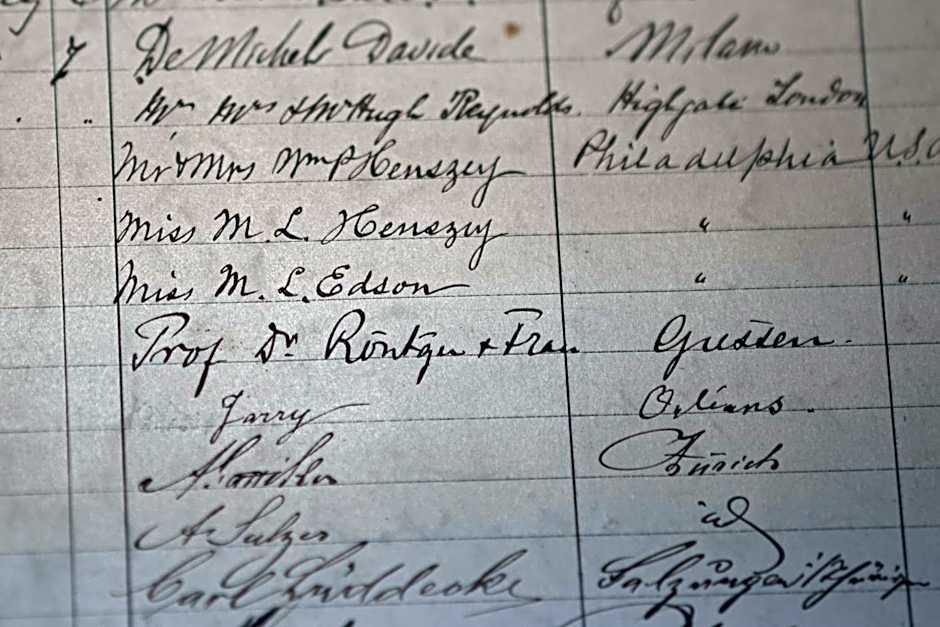 7 De Michels Davide Milano
" Mr Mrs & Mr Hugh Reynolds. Highgate London
Mr & Mrs Wm P Henszey Philadelphia U.S.
Miss M. L. Henszey " "
Miss M. L. Edson " "
Prof Dr. Röntgen + Frau Giessen.
Jarry Orléans.
Zürich
A Sulzer id
Carl Lüddecke Salzungen i/Thüringen